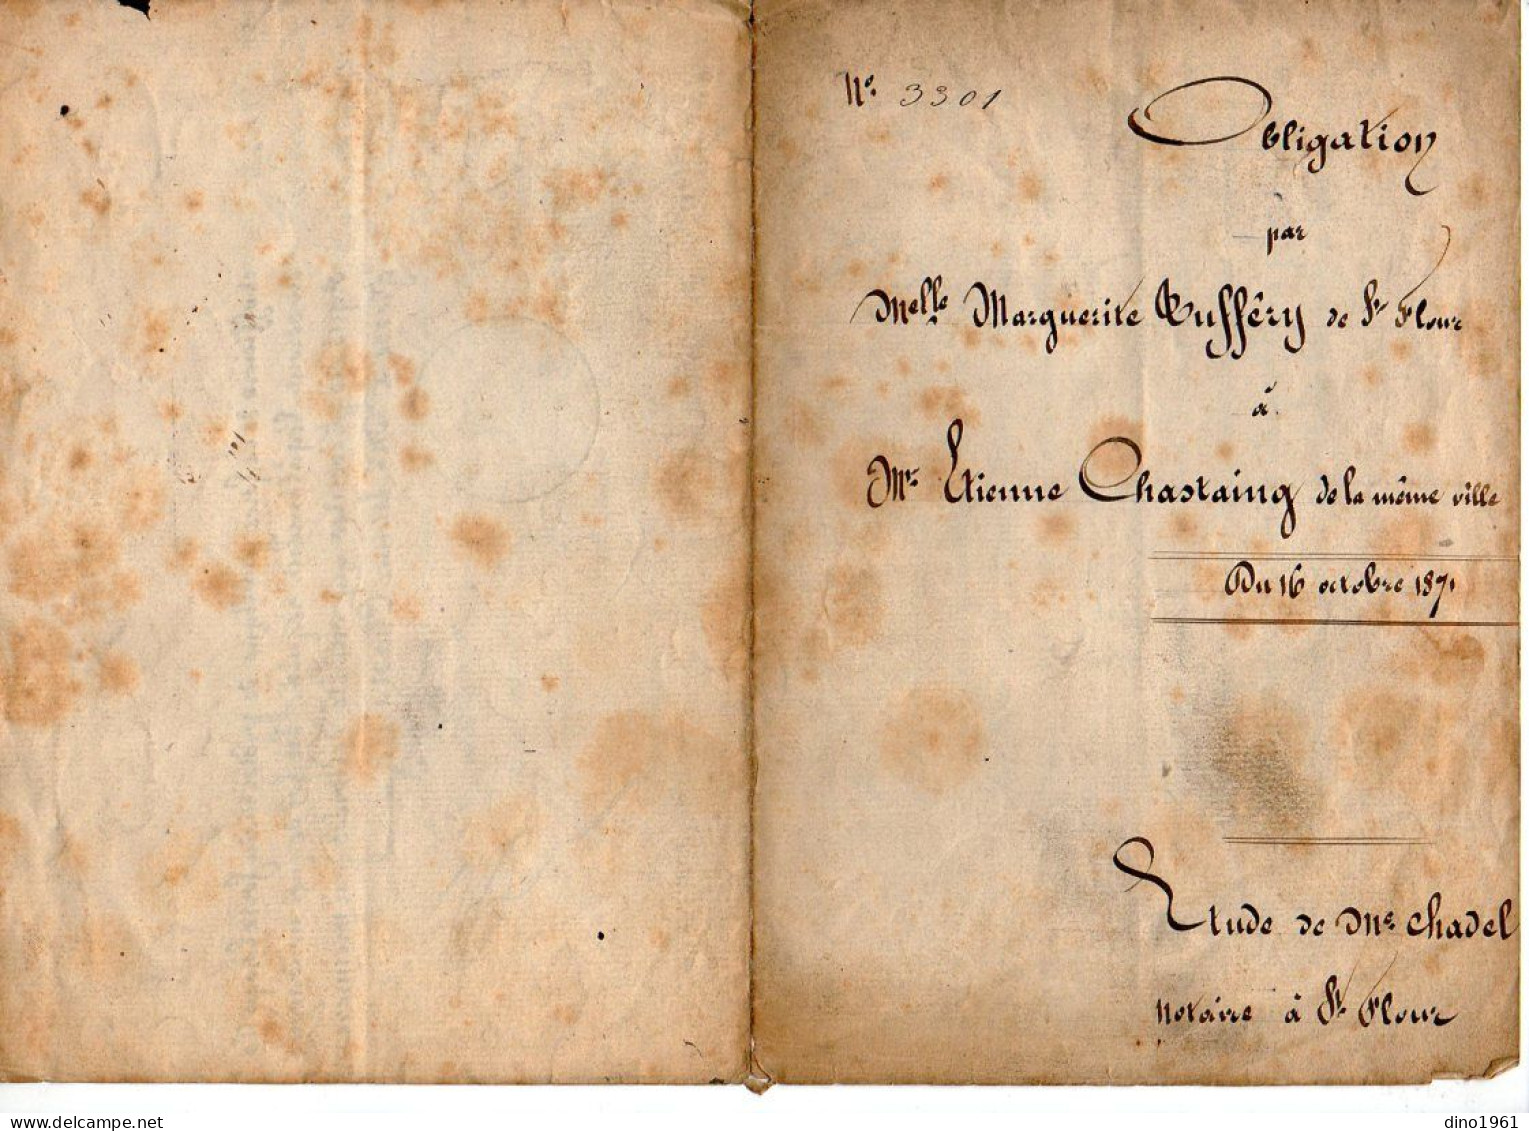 No. 3301
Obligation
par
Melle Marguerite Buffêry de St Flour
à
Mr. Etienne Chastaing de la même ville
Du 16 octobre 1871
Etude de Me. Chadel
notaire à St Flour
delcampe.net
dino1961